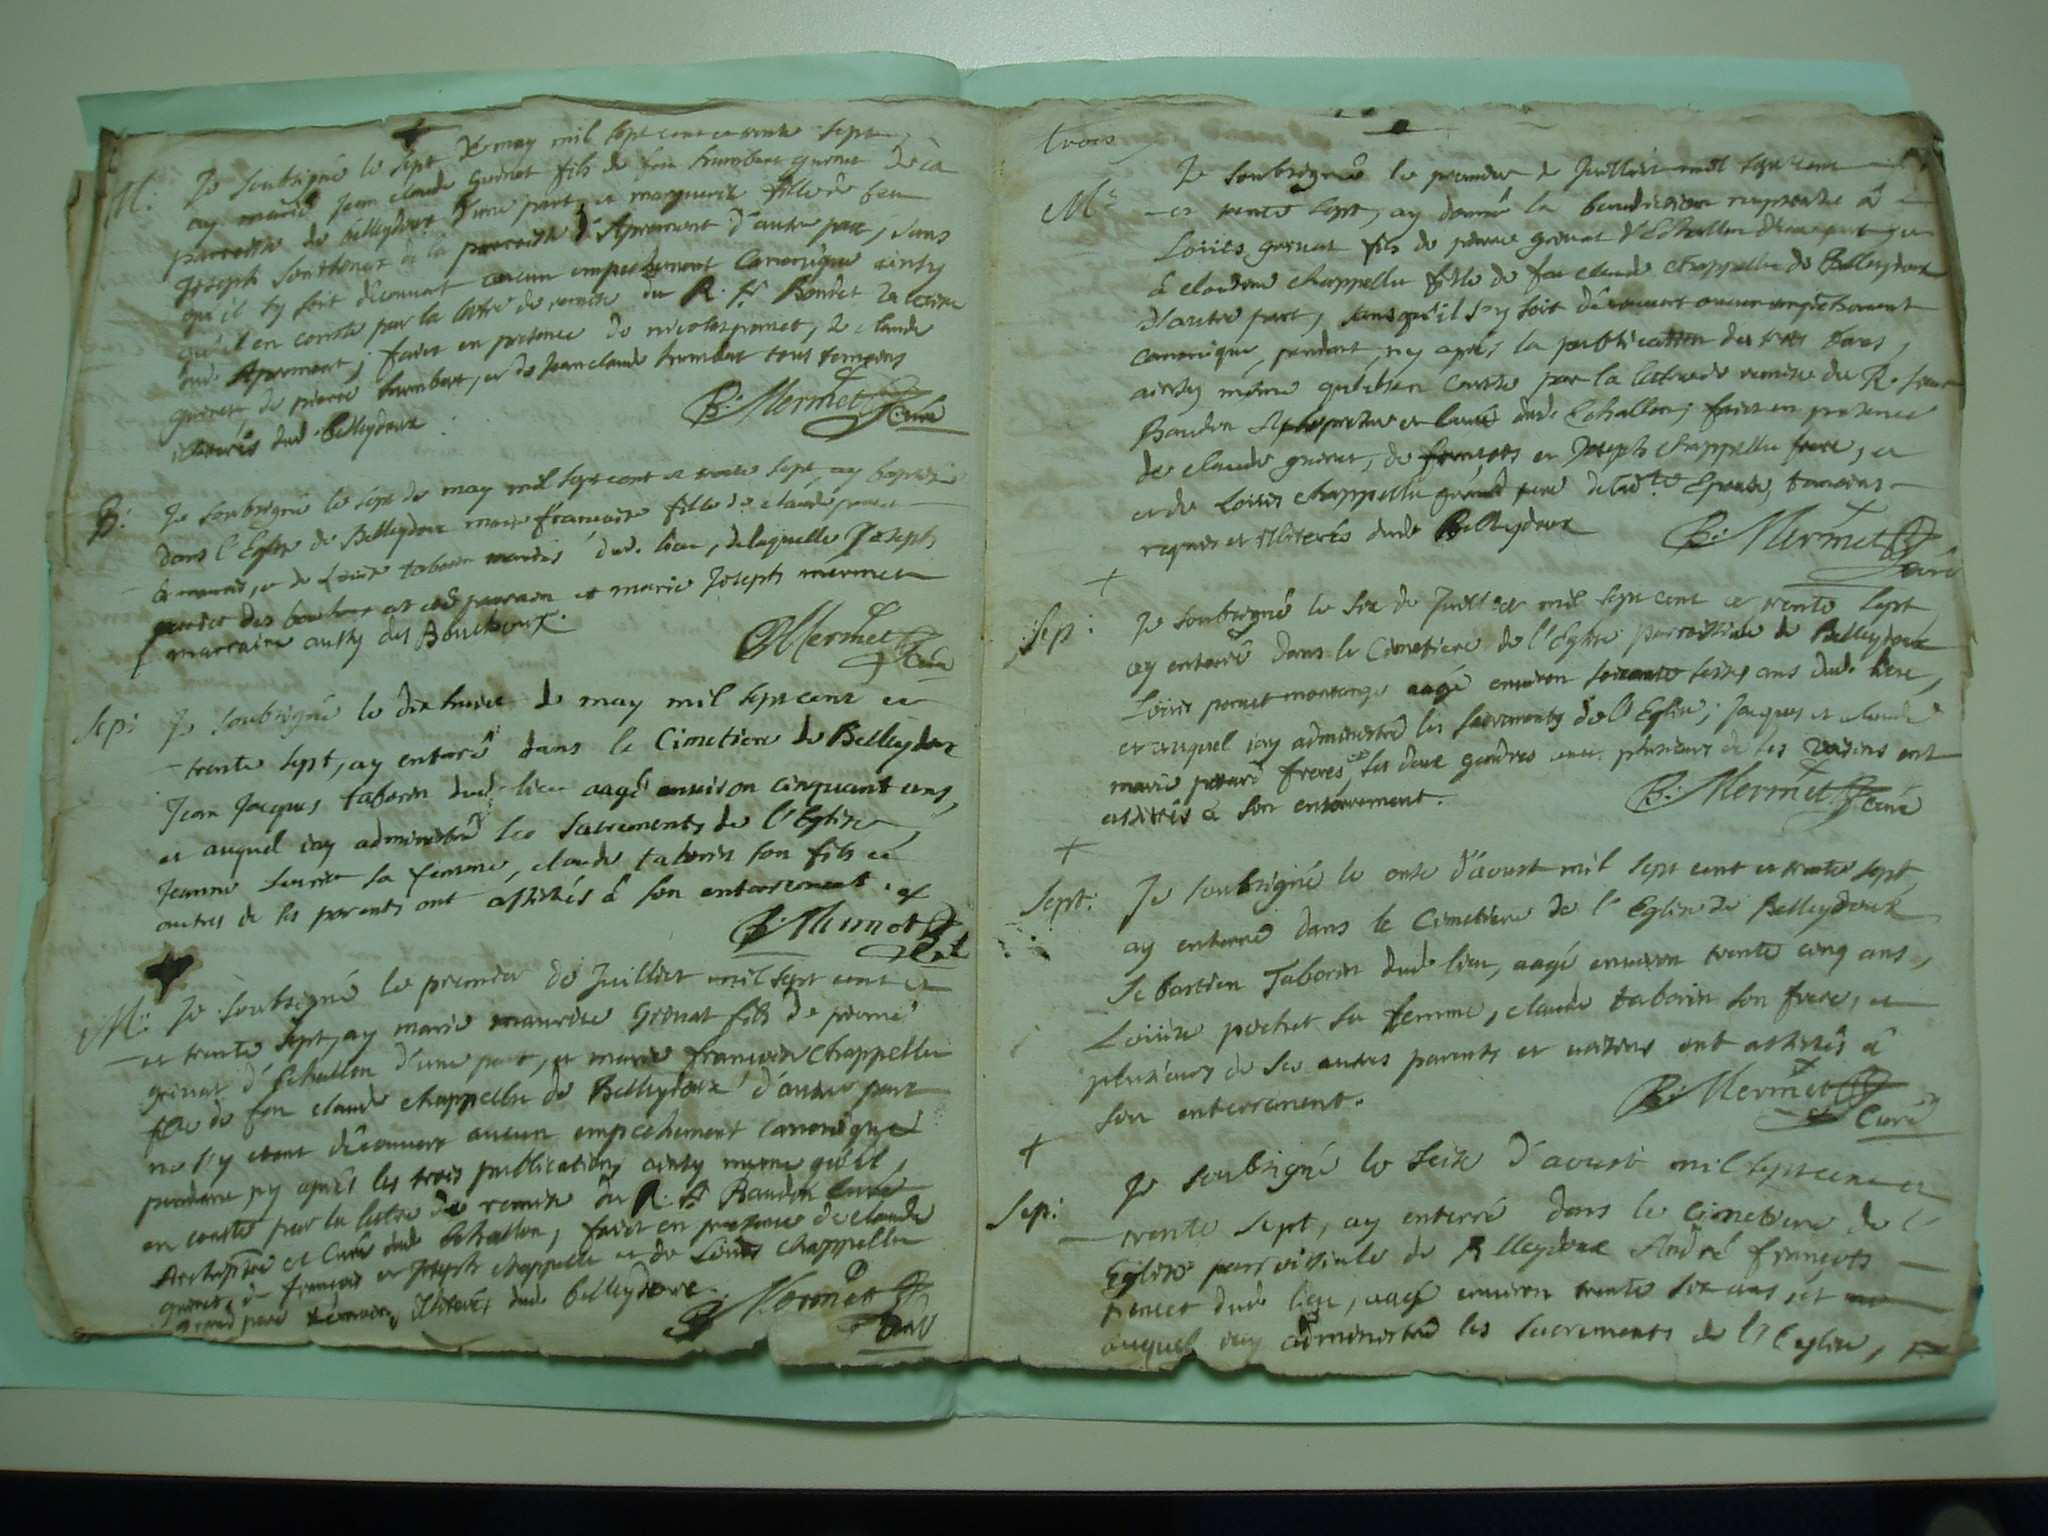 M: Je soubsigné le sept de may mil sept cent et trente sept
ay marié Jean claude Guenet fils de feu humbert guenet de la
parroisse de belleydoux d'une part, et marguerite fille de feu
Joseph de la parroisse d'Apremont d'autre part, sans
qu'il s'y soit découvert aucun empechement canonique ainsy
qu'il en conste par la lettre de remise du R. Sr Bondet curé
dud. Apremont; faict en présence de nicolas, de claude
guenet de pierre humbert, et de Jean claude humbert tous temoins
illiterés dud. belleydoux
B: Mermet Curé
B: Je soubsigné le sept de may mil sept cent et trente sept, ay baptisé
dans l'Eglise de Belleydoux marie françoise fille de claude
et de Louise taborin mariés dud. lieu, de laquelle Joseph
des a été parrain et marie Joseph mermet
marraine aussy des Bouchoux.
B: Mermet Curé
Sep: Je soubsigné le dix huict de may mil sept cent et
trente sept, ay enterré dans le Cimetiere de Belleydoux
Jean Jacques taborin dud. lieu aagé environ cinquant ans,
et auquel iay administré les sacrements de l'Eglise,
Jeanne sa femme, claude taborin son fils et
autres de ses parents ont assistés â son enterrement.
B: Mermet Curé
M: Je soubsigné le premier de Juilliet mil sept cent et
et trente sept, ay marié maurice Grenat fils de pierre
grenat d'Echallon d'une part, et marie françoise chappellu
fille de feu claude chappellu de Belleydoux d'autre part
ne s'y etant découvert aucun empechement canonique
pendant, ny aprés les trois publications ainsy meme qu'il
en conste par la lettre de remise du R. Sr Baudon
Archiprêtre et Curé dud. Echallon, faict en presence de claude
guenet, de françois et Joseph chappellu et de Louis chappellu
grand pere temoins, illiterés dud. belleydoux
B: Mermet Curé
trois
Je soubsigné le premier de Juilliet mil sept cent
M: et trente sept, ay donné la benediction nuptiale â
Louis grenat fils de pierre grenat d'Echallon d'une part
â claudine chappellu fille de feu claude chappellu de Belleydoux
d'autre part, sans qu'il s'y soit découvert aucun empechement
canonique, pendant, ny aprés la publication des trois bans,
ainsy même qu'il en conste par la lettre de remise du R. Sieur
Baudon Archiprêtre et Curé dud. Echallon; faict en presence
de claude guenet, de françois et Joseph chappellu frere, et
et de Louis chappellu grand pere de lad.te Epouse, temoins
requis et illiterés dud. Belleydoux
B: Mermet Curé
Sep: Je soubsigné le six de Juilliet mil sept cent et trente sept
ay enterré dans le Cimetiere de l'Eglise parroissiale de Belleydoux
Louis poncet aagé environ soixante seize ans dud. lieu,
et auquel iay administré les sacrements de l'Eglise; Jacques et claude
marie freres, ses deux gendres avec plusieurs de ses voisins ont
assistés â son enterrement.
B: Mermet Curé
Sept: Je soubsigné le onze d'aoust mil sept cent et trente sept,
ay enterré dans le Cimetiere de l'Eglise de Belleydoux
Sebastien Taborin dud. lieu, aagé environ trente cinq ans,
Louise pochet sa femme, claude taborin son frere, et
plusieurs de ses autres parents et voisins ont assistés â
son enterrement.
B: Mermet Curé
Sep: Je soubsigné le seize d'aoust mil sept cent et
trente sept, ay enterré dans le cimetiere de l'
Eglise parroissiale de Belleydoux André françois
poncet dud. lieu, aagé environ trente six ans, et
auquel iay administré les sacrements de l'Eglise,